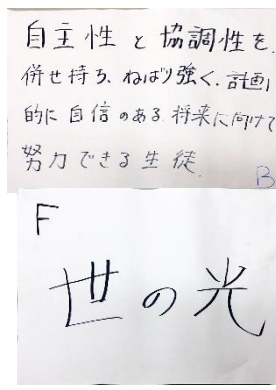 自主性と協調性を、
併せ持ち、ねばり強く、計画
的に自信のある、将来に向けて
努力できる生徒
B
F
世の光